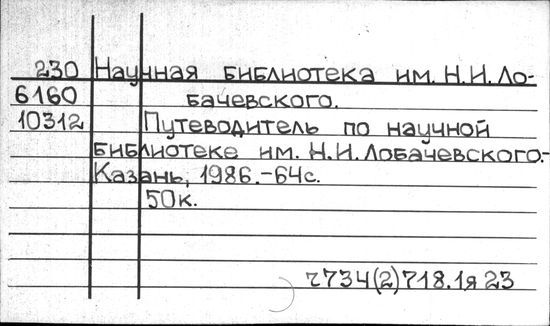 230 Научная библиотека им. Н.И. Ло-
6160 бачевского.
10312 Путеводитель по научной
библиотеке им. Н.И. Лобачевского.-
Казань, 1986.-64с.
50к.
ч734(2)718.1я23